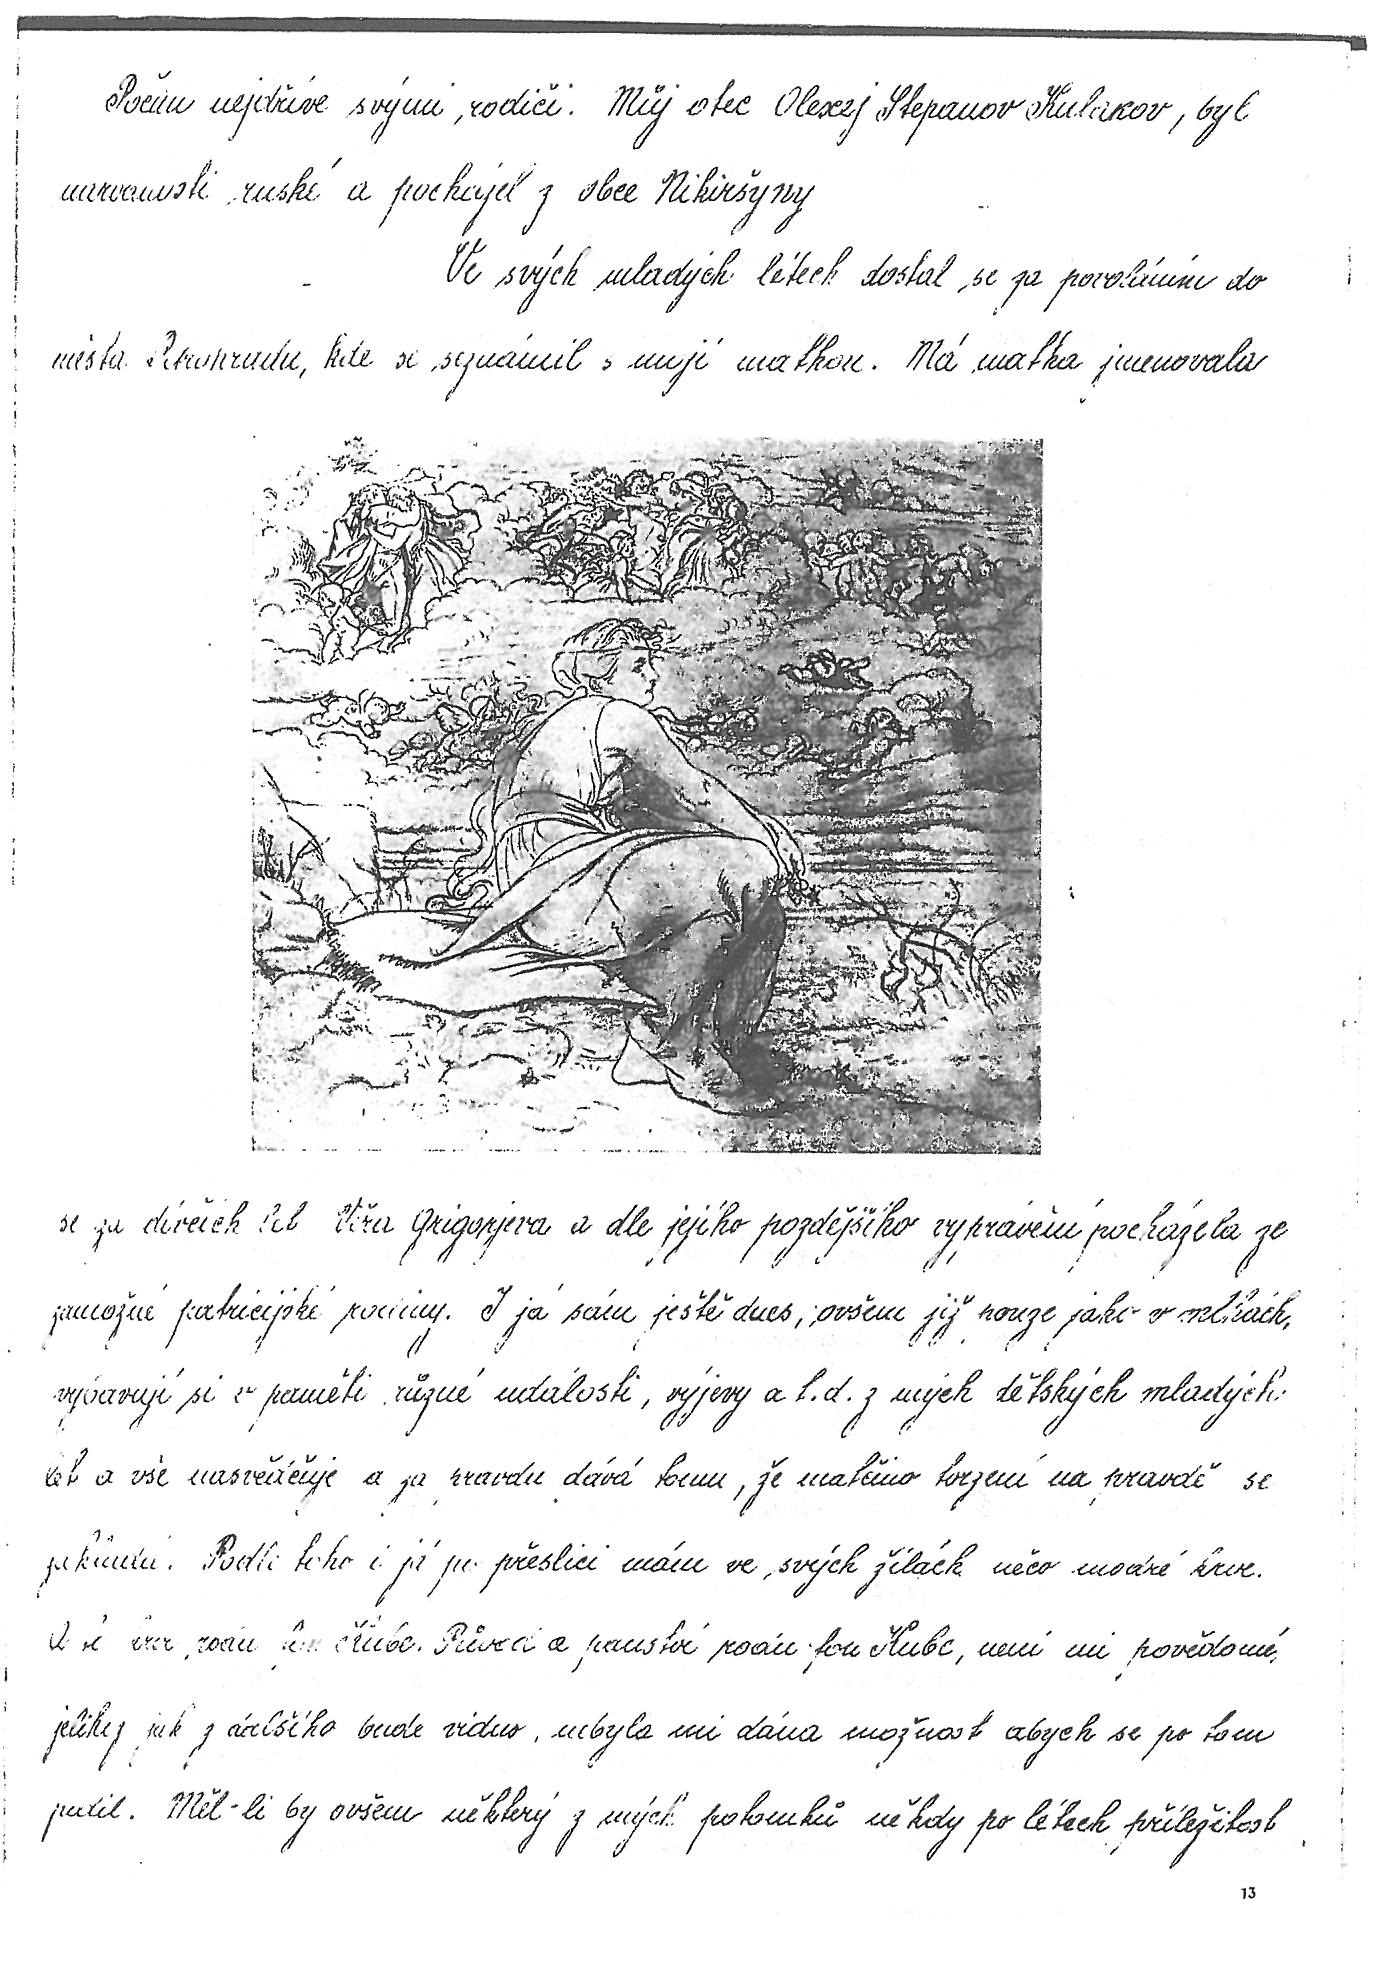 Počnu nejdříve svými rodiči. Můj otec Olexej Stepanov Kulakov, byl
národnosti ruské a pocházel z obce Nikiršyny
Ve svých mladých létech dostal se za povoláním do
města Petrohradu, kde se seznámil s mojí matkou. Má matka jmenovala
se za dívčích let Věra Grigorjeva a dle jejího pozdějšího vyprávění pocházela ze
zámožné patricijské rodiny. I já sám ještě dnes, ovšem již pouze jako v mlhách,
vybavují si v paměti různé události, výjevy a t.d. z mých dětských mladých
let a vše nasvědčuje a za pravdu dává tomu, že matčino tvrzení na pravdě se
zakládá. Podle toho i já po přeslici mám ve svých žílách něco modré krve.
rodu fon Kube. Původ a panství rodu fon Kube, není mi povědomé,
jelikož jak z dalšího bude vidno, nebyla mi dána možnost abych se po tom
pídil. Měl-li by ovšem některý z mých potomků někdy po létech příležitost
13